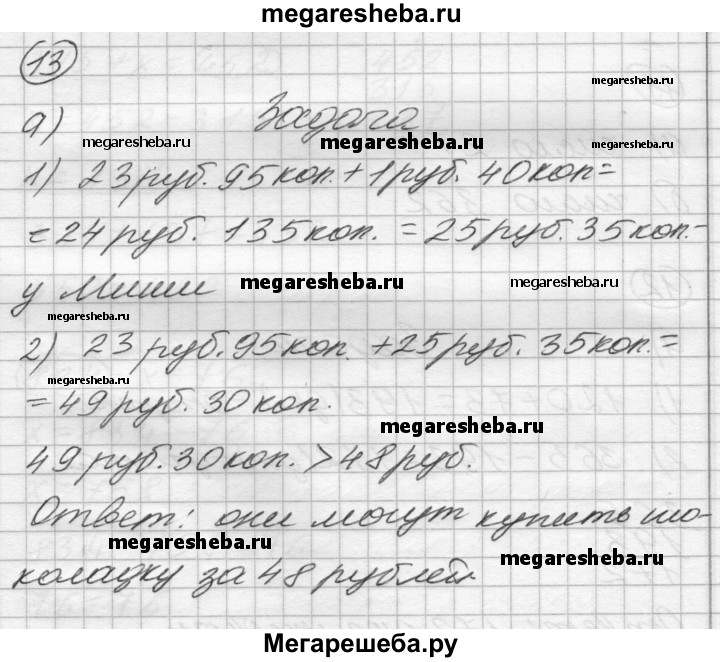 megaresheba.ru
13
megaresheba.ru
а) Задача
megaresheba.ru megaresheba.ru
1) 23 руб. 95 коп. + 1 руб. 40 коп =
= 24 руб. 135 коп. = 25 руб. 35 коп. -
у Миши megaresheba.ru megaresheba.ru
megaresheba.ru
2) 23 руб. 95 коп. + 25 руб. 35 коп. =
megaresheba.ru
= 49 руб. 30 коп.
megaresheba.ru
49 руб. 30 коп. > 48 руб.
Ответ: они могут купить шо-
megaresheba.ru megaresheba.ru
коладку за 48 рублей
Мегарешеба.ру